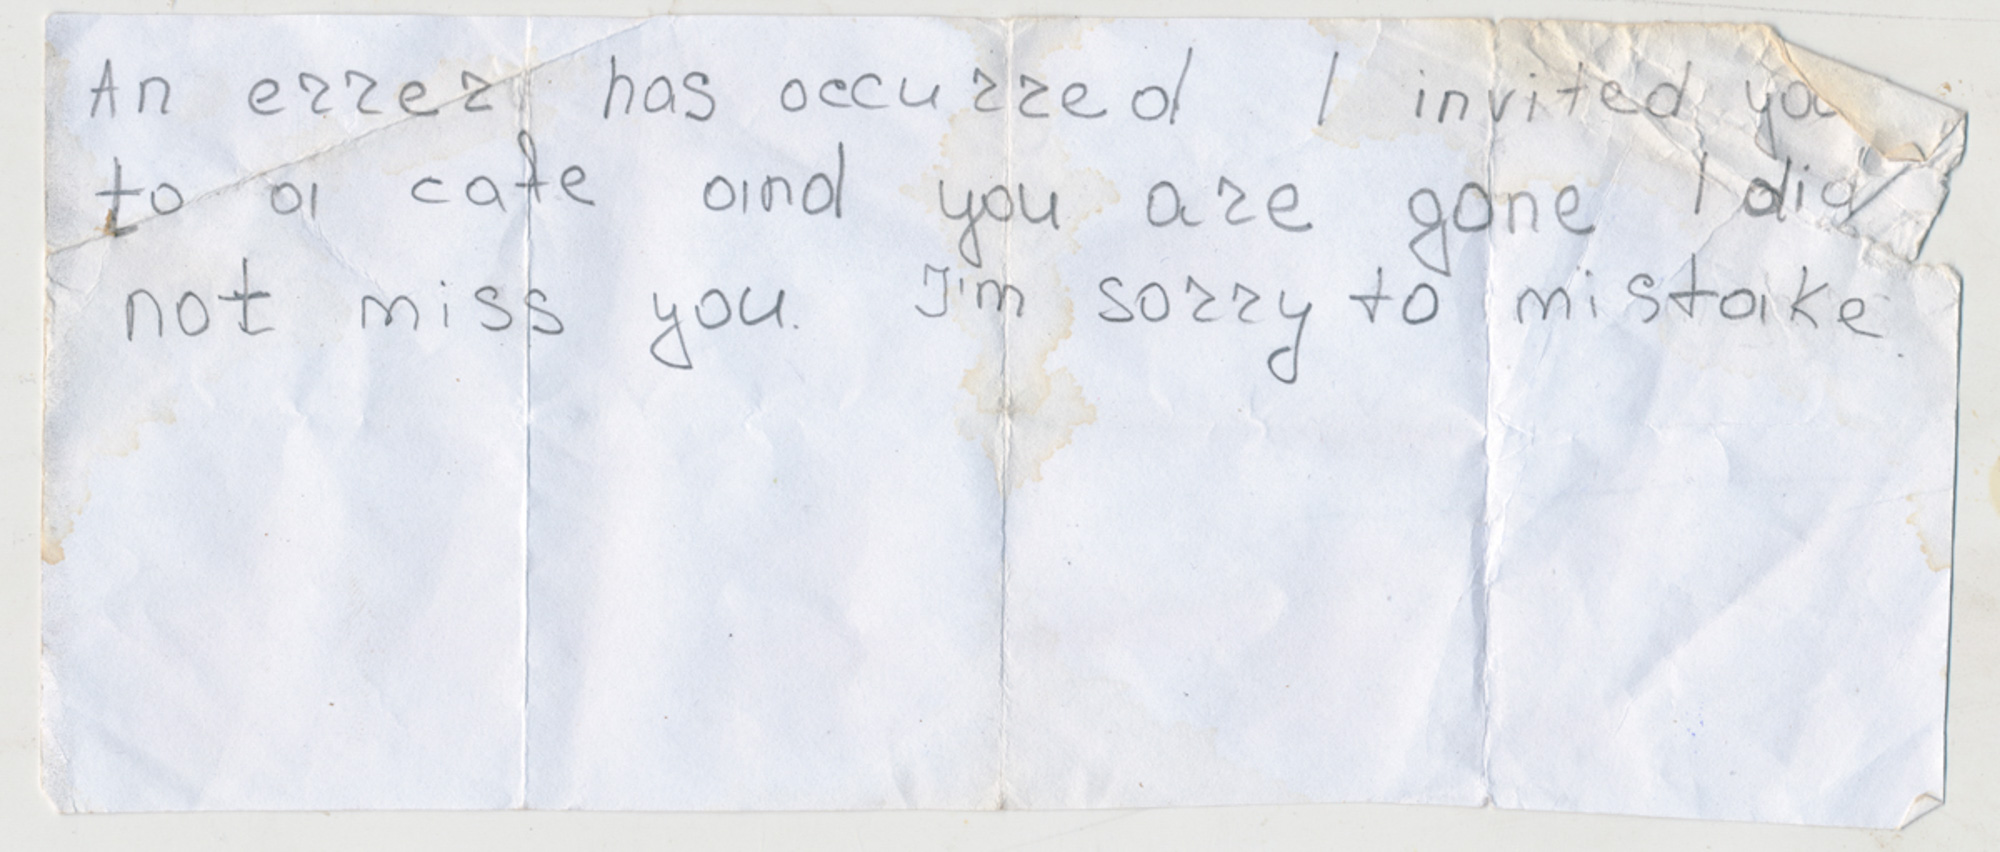 An errer has occurred I invited you
to a cafe and you are gone I did
not miss you. I'm sorry to mistake.